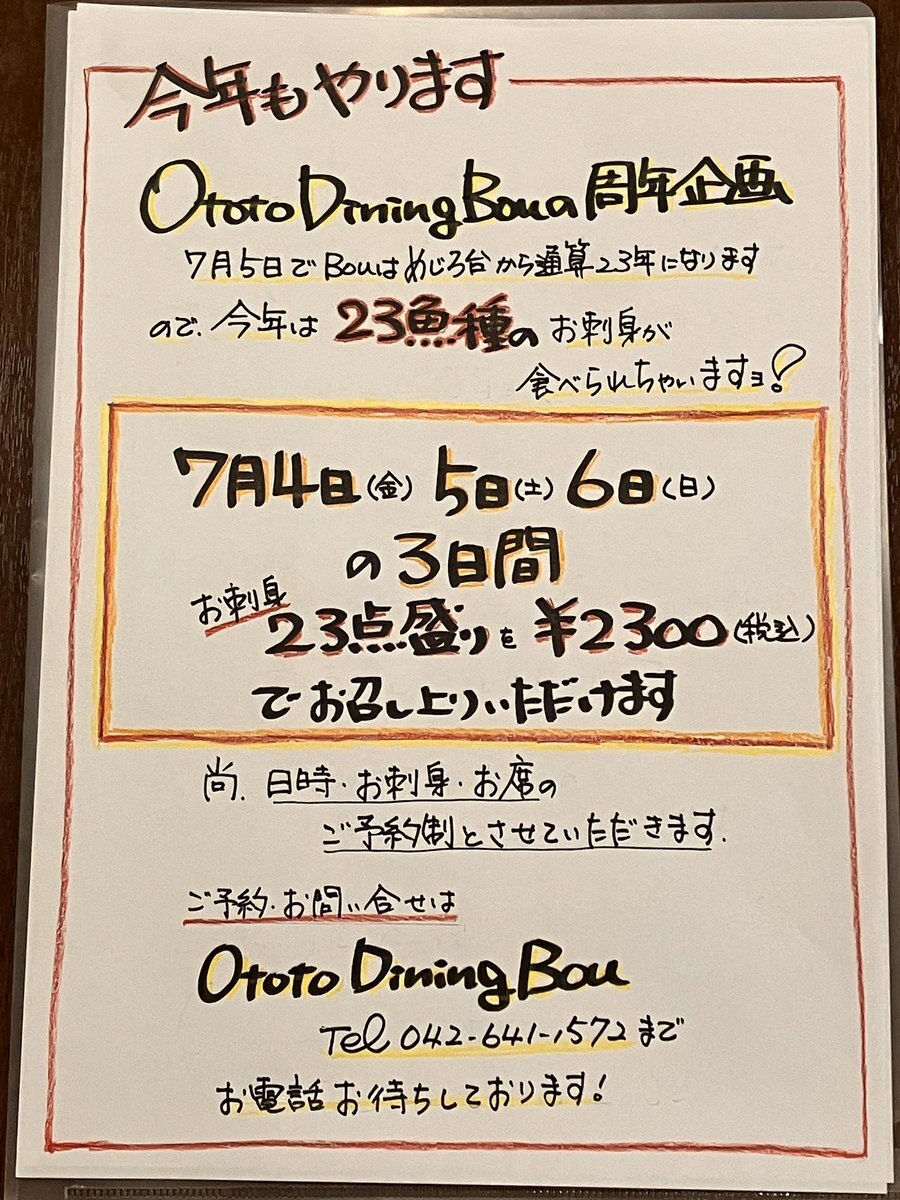 今年もやります
Ototo Dining Bouの周年企画
7月5日でBouはめじろ台から通算23年になります
ので、今年は23魚種のお刺身が
食べられちゃいますョ!
7月4日(金)5日(土)6日(日)
の3日間
お刺身
23点盛りを¥2300(税込)
でお召し上りいただけます
尚、日時・お刺身・お席の
ご予約制とさせていただきます.
ご予約・お問い合せは
Ototo Dining Bou
Tel 042-641-1572まで
お電話お待ちしております!